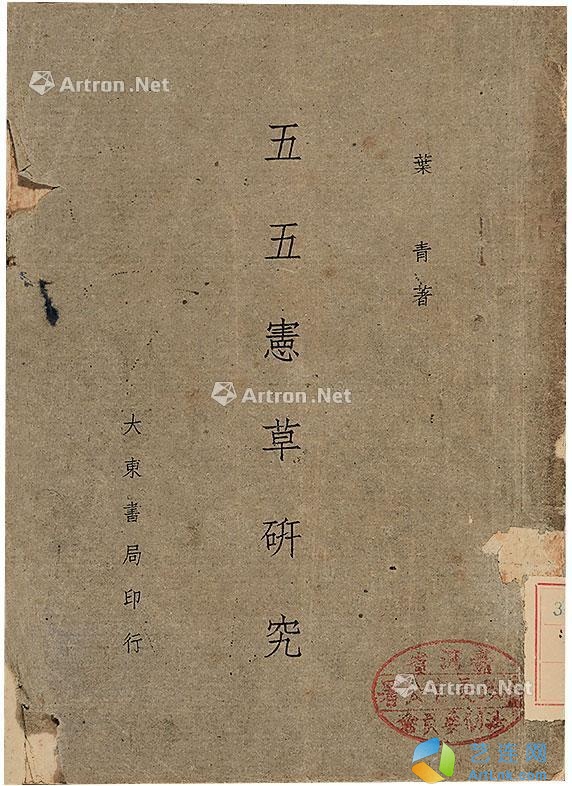 葉青著
五五憲草研究
大東書局印行
Artron.Net
Artron.Net
Artron.Net
艺连网